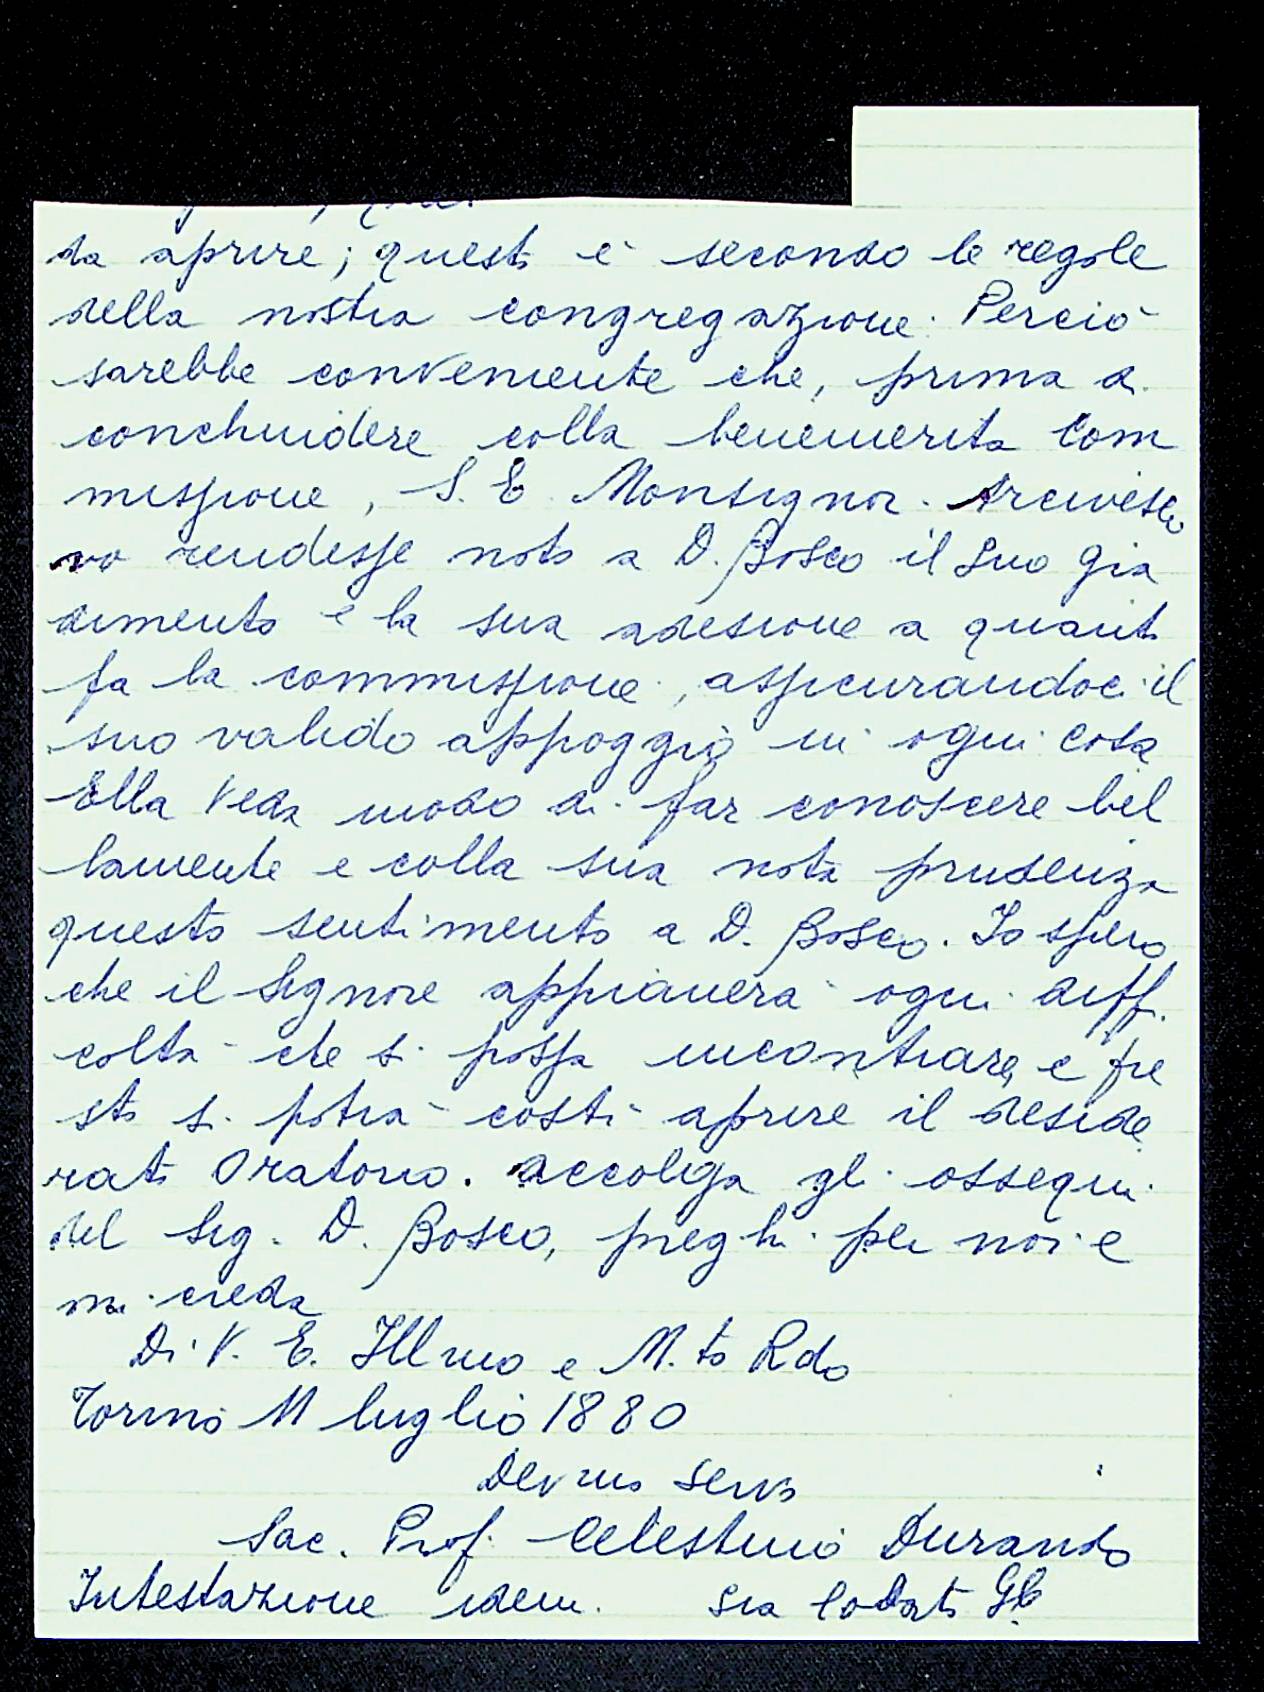 da aprire; questo è secondo le regole
della nostra congregazione. Perciò
sarebbe conveniente che, prima di
conchiudere colla benemerita Com
missione, S. E. Monsignor Arcivesco
vo rendesse noto a D. Bosco il suo gra
dimento e la sua adesione a quanto
fa la commissione, assicurandoci il
suo valido appoggio in ogni cosa
Ella veda modo di far conoscere bel
lamente e colla sua nota prudenza
questo sentimento a D. Bosco. Io spero
che il Signore appianerà ogni diffi
coltà che si possa incontrare, e pre
sto si potrà costì aprire il deside
rato Oratorio. Accolga gli ossequi
del Sig. D. Bosco, preghi per noi e
mi creda
Di V. E. Ill mo e M. to Rdo
Torino 11 luglio 1880
Dev mo servo
Sac. Prof. Celestino Durando
Intestazione idem. Sia lodato G.C.